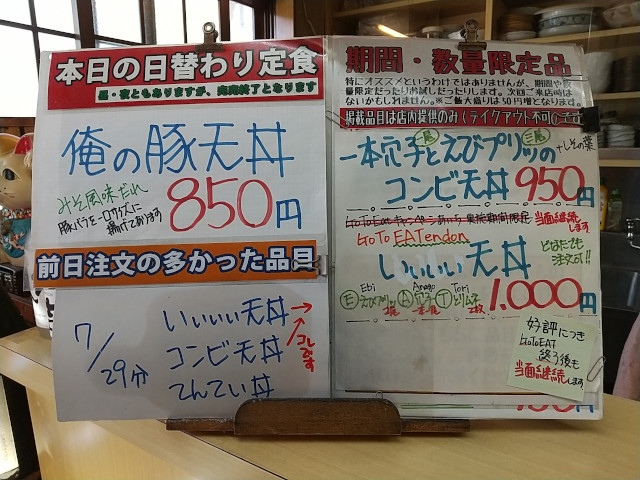 本日の日替わり定食
昼・夜ともありますが、売切終了となります
俺の豚天丼
みそ風味だれ
豚バラを一口サイズに
揚げております
850円
前日注文の多かった品目
7/29分
いいいい天丼
コンビ天丼
てんてい丼
コレです
期間・数量限定品
特にオススメというわけではありませんが、期間や数
量限定だったりお試しだったりします。次回ご来店時は
ないかもしれません。※ご飯大盛りは50円増となります。
掲載品目は店内提供のみ(テイクアウト不可)です
一本穴子とえびプリッの
二尾
三尾
+しその葉
コンビ天丼 950円
GoToEatキャンペーンあやかり実施期間限定
当面継続します
GoTo EATendon
いいいい天丼
どなたでも
注文可!!
1.000円
Ebi
Anago
Tori
E えびプリッ 2尾 A 穴子 一尾 T とりムネ 2枚
好評につき
GoToEAT
終了後も
当面継続します